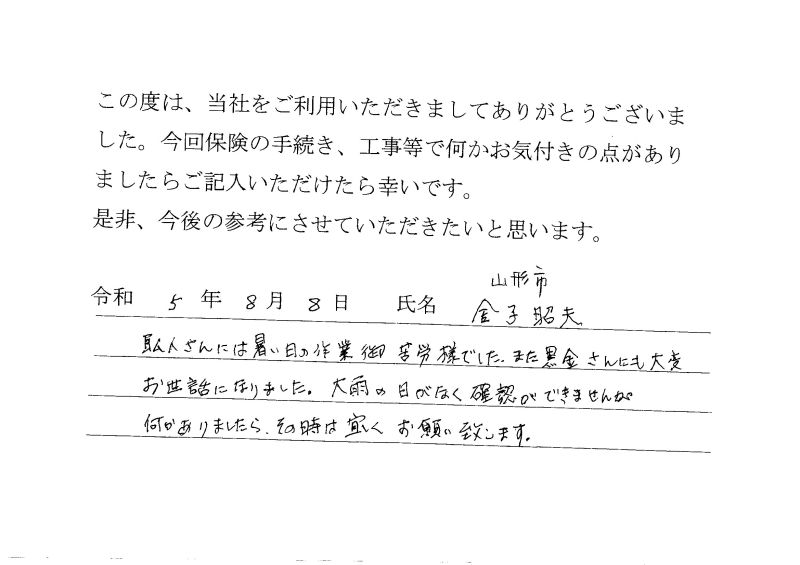 この度は、当社をご利用いただきましてありがとうございま
した。今回保険の手続き、工事等で何かお気付きの点があり
ましたらご記入いただけたら幸いです。
是非、今後の参考にさせていただきたいと思います。
山形市
令和 5 年 8 月 8 日 氏名 金子昭夫
職人さんには暑い日の作業御苦労様でした。また黒金さんにも大変
お世話になりました。大雨の日がなく確認ができませんが
何かありましたら、その時は宜しくお願い致します。